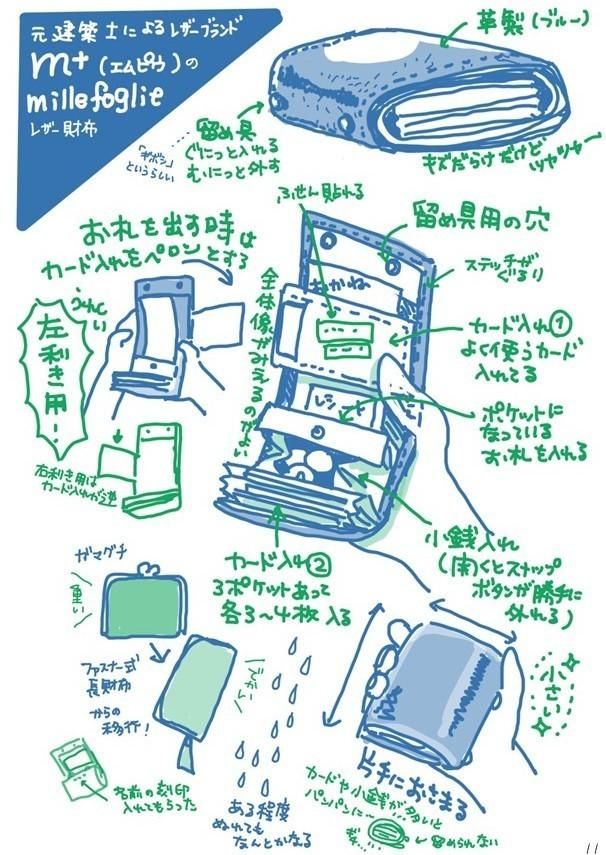 元建築士によるレザーブランド
m+(エムピウ)の
millefoglie
レザー財布
革製(ブルー)
留め具
ぐにっと入れる
むにっと外す
「ギボシ」
というらしい
キズだらけだけどツヤツヤ
ふせん貼れる
留め具用の穴
ステッチが
ぐるり
お札を出す時は
カード入れをペロンとする
左利き用!
右利き用は
カード入れが逆
全体像がみえるのがよい
おかね
カード入れ①
よく使うカード
入れてる
レシート
ポケットに
なっている
お札を入れる
小銭入れ
(開くとスナップ
ボタンが勝手に
外れる)
カード入れ②
3ポケットあって
各3〜4枚入る
ガマグチ
重い
ファスナー式
長財布
からの
移行!
でかい
名前の刻印
入れてもらった
ある程度
ぬれても
なんとかなる
小さい
片手におさまる
カードや小銭が多いと
パンパンに〜
留められない
11